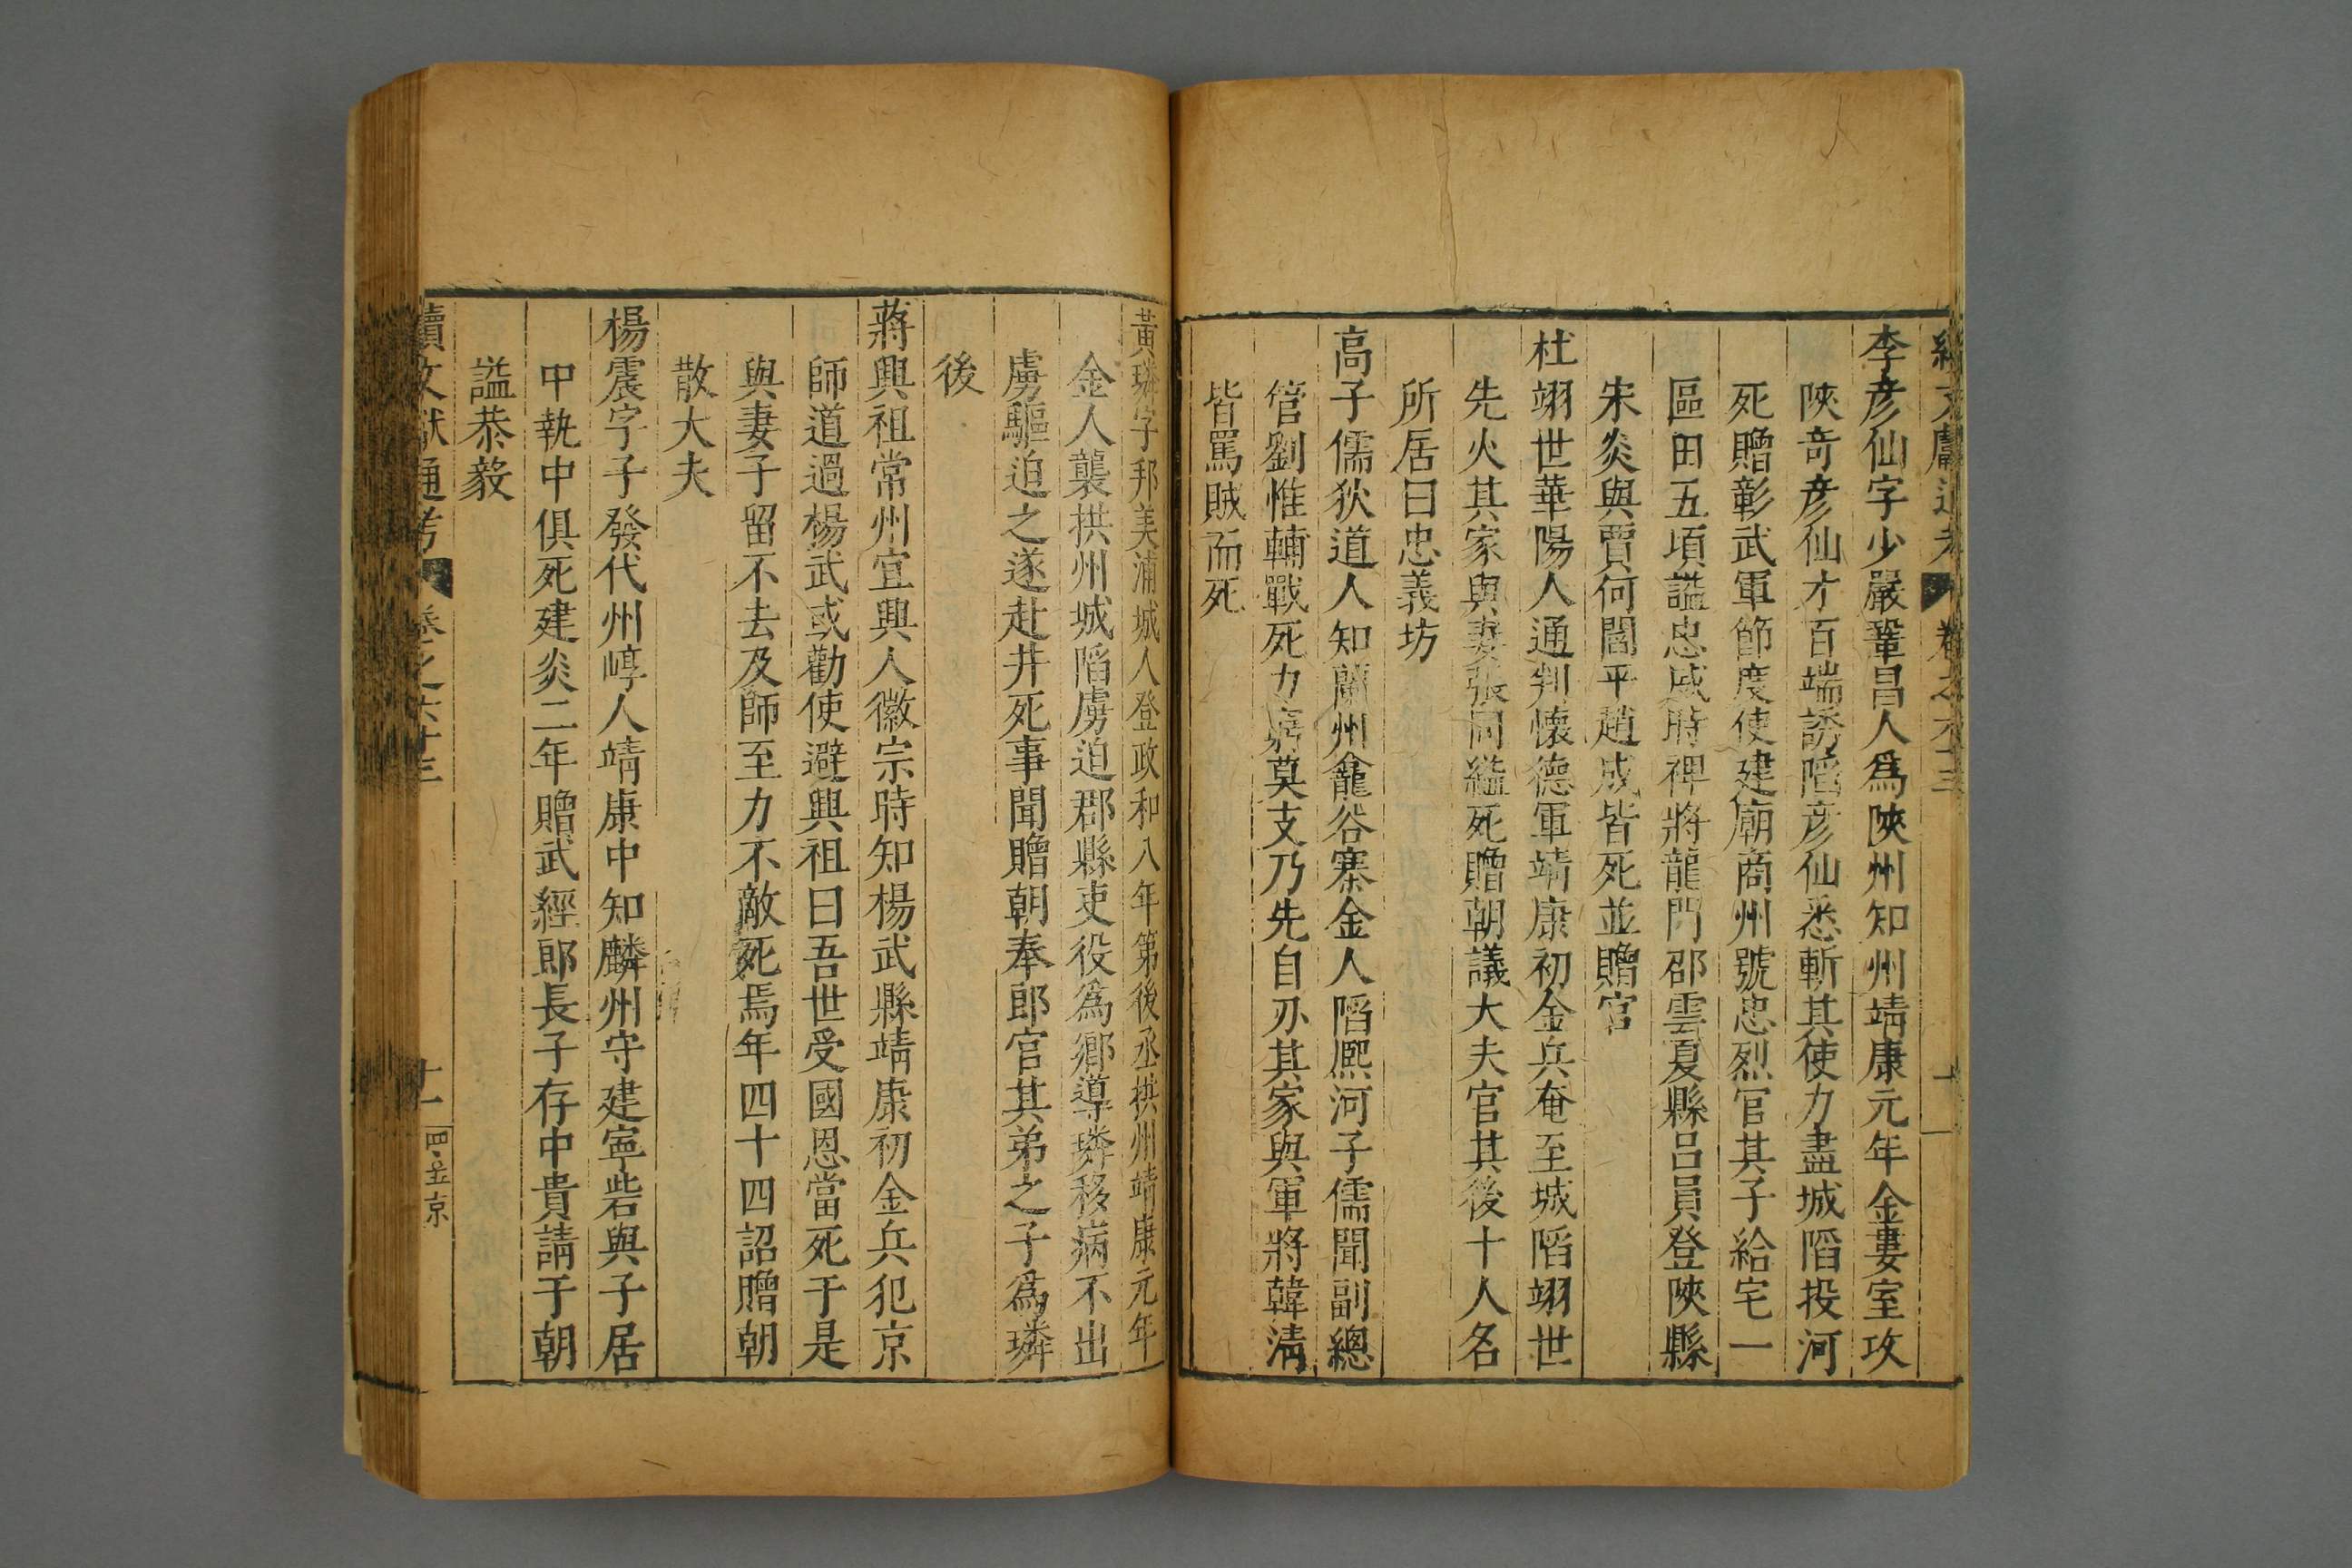 李彥仙字少嚴鞏昌人爲陝州知州靖康元年金婁室攻
陝奇彥仙才百端誘陷彥仙悉斬其使力盡城陷投河
死贈彰武軍節度使建廟商州號忠烈官其子給宅一
區田五頃謚忠威時裨將龍門邵雲夏縣呂員登陝縣
宋炎與賈何閻平趙成皆死並贈官
杜翊世華陽人通判懷德軍靖康初金兵奄至城陷翊世
先火其家與妻張同縊死贈朝議大夫官其後十人名
所居曰忠義坊
高子儒狄道人知蘭州龕谷寨金人陷熈河子儒聞副總
管劉惟輔戰死力窮莫支乃先自刃其家與軍將韓淸
皆罵賊而死
黃璘字邦美浦城人登政和八年第後丞拱州靖康元年
金人襲拱州城陷虜迫郡縣吏役爲鄉導璘移病不出
虜驅迫之遂赴井死事聞贈朝奉郎官其弟之子爲璘
後
蔣興祖常州宜興人徽宗時知楊武縣靖康初金兵犯京
師道過楊武或勸使避興祖曰吾世受國恩當死于是
與妻子留不去及師至力不敵死焉年四十四詔贈朝
散大夫
楊震字子發代州崞人靖康中知麟州守建寧砦與子居
中執中俱死建炎二年贈武經郎長子存中貴請于朝
謚恭毅
續文獻通考 卷之六十三 十一 四五京